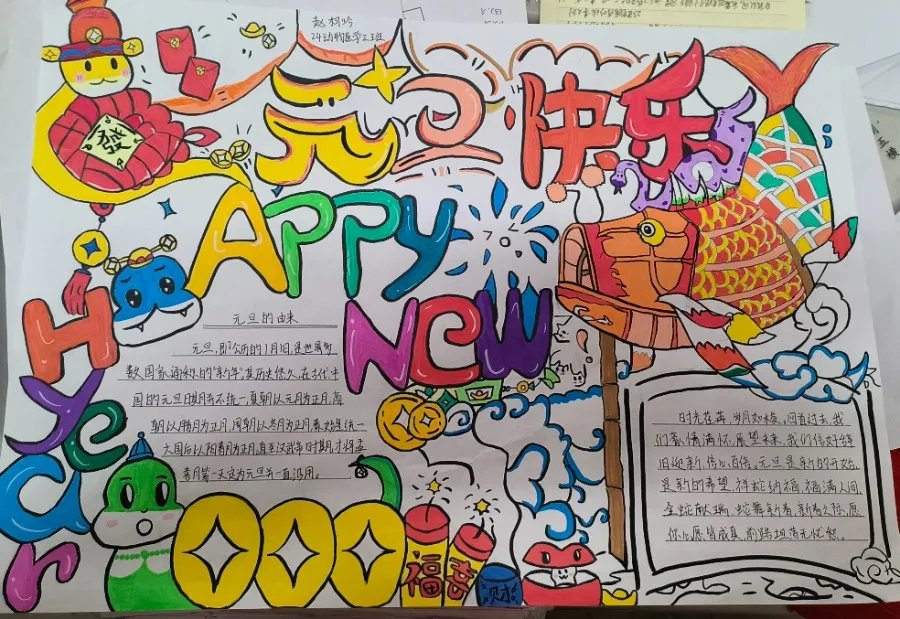 24动物医学2班
發
元旦快乐
HAPPY
NeW
year
元旦的由来
元旦,即公历的1月1日,是世界多
数国家通称的"新年",其历史悠久,在古代中
国的元旦日期并不统一,夏朝以元月为正月,商
朝以腊月为正月,周朝以冬月为正月,秦始皇统一
六国后以阳春月为正月,直至汉武帝时期才将孟
春月第一天定为元旦并一直沿用。
时光荏苒,岁月如梭,回首过去,我
们豪情满怀,展望未来,我们信心
旧迎新,信心百倍。元旦是新的开始,
是新的希望,祥蛇纳福,福满人间,
金蛇献瑞,蛇舞新春,新春之际,愿
你心愿皆成真,前路坦荡无忧愁。
福
喜
财